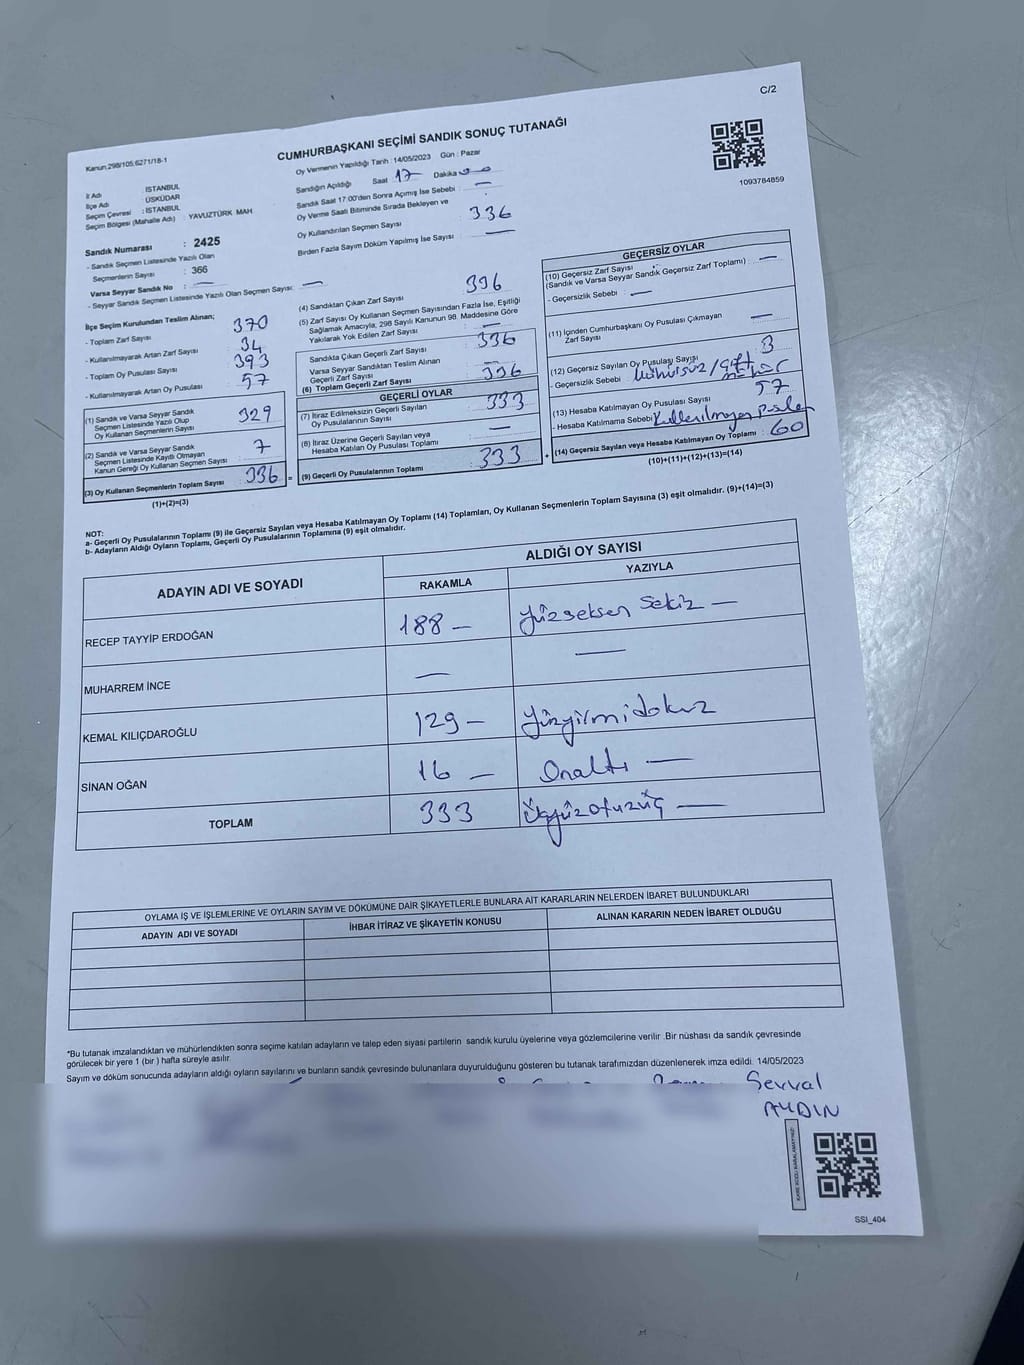 C/2
Kanun,298/105,6271/18-1
CUMHURBAŞKANI SEÇİMİ SANDIK SONUÇ TUTANAĞI
1093784859
İl Adı : İSTANBUL
İlçe Adı : ÜSKÜDAR
Seçim Çevresi : İSTANBUL
Seçim Bölgesi (Mahalle Adı) : YAVUZTÜRK MAH
Sandık Numarası : 2425
- Sandık Seçmen Listesinde Yazılı Olan
Seçmenlerin Sayısı : 366
Varsa Seyyar Sandık No : —
- Seyyar Sandık Seçmen Listesinde Yazılı Olan Seçmen Sayısı: —
Oy Vermenin Yapıldığı Tarih : 14/05/2023 Gün : Pazar
Sandığın Açıldığı Saat 17 Dakika 00
Sandık Saat 17:00'den Sonra Açımış İse Sebebi : —
Oy Verme Saati Bitiminde Sırada Bekleyen ve
Oy Kullandırılan Seçmen Sayısı : 336
Birden Fazla Sayım Döküm Yapılmış İse Sayısı : —
İlçe Seçim Kurulundan Teslim Alınan;
- Toplam Zarf Sayısı : 370
- Kullanılmayarak Artan Zarf Sayısı : 34
- Toplam Oy Pusulası Sayısı : 393
- Kullanılmayarak Artan Oy Pusulası : 57
(1) Sandık ve Varsa Seyyar Sandık
Seçmen Listesinde Yazılı Olup
Oy Kullanan Seçmenlerin Sayısı : 329
(2) Sandık ve Varsa Seyyar Sandık
Seçmen Listesinde Kayıtlı Olmayan
Kanun Gereği Oy Kullanan Seçmen Sayısı : 7
(3) Oy Kullanan Seçmenlerin Toplam Sayısı : 336 =
(1)+(2)=(3)
(4) Sandıktan Çıkan Zarf Sayısı : 336
(5) Zarf Sayısı Oy Kullanan Seçmen Sayısından Fazla İse, Eşitliği
Sağlamak Amacıyla, 298 Sayılı Kanunun 98. Maddesine Göre
Yakılarak Yok Edilen Zarf Sayısı : —
Sandıkta Çıkan Geçerli Zarf Sayısı : 336
Varsa Seyyar Sandıktan Teslim Alınan
Geçerli Zarf Sayısı : —
(6) Toplam Geçerli Zarf Sayısı : 336
GEÇERLİ OYLAR
(7) İtiraz Edilmeksizin Geçerli Sayılan
Oy Pusulalarının Sayısı : 333
(8) İtiraz Üzerine Geçerli Sayılan veya
Hesaba Katılan Oy Pusulası Toplamı : —
(9) Geçerli Oy Pusulalarının Toplamı : 333 +
GEÇERSİZ OYLAR
(10) Geçersiz Zarf Sayısı : —
(Sandık ve Varsa Seyyar Sandık Geçersiz Zarf Toplamı)
- Geçersizlik Sebebi : —
(11) İçinden Cumhurbaşkanı Oy Pusulası Çıkmayan
Zarf Sayısı : —
(12) Geçersiz Sayılan Oy Pusulası Sayısı : 3
- Geçersizlik Sebebi : Mühürsüz/Çift mühür
(13) Hesaba Katılmayan Oy Pusulası Sayısı : 57
- Hesaba Katılmama Sebebi : Kullanılmayan pusula
(14) Geçersiz Sayılan veya Hesaba Katılmayan Oy Toplamı : 60
(10)+(11)+(12)+(13)=(14)
NOT:
a- Geçerli Oy Pusulalarının Toplamı (9) ile Geçersiz Sayılan veya Hesaba Katılmayan Oy Toplamı (14) Toplamları, Oy Kullanan Seçmenlerin Toplam Sayısına (3) eşit olmalıdır. (9)+(14)=(3)
b- Adayların Aldığı Oyların Toplamı, Geçerli Oy Pusulalarının Toplamına (9) eşit olmalıdır.
ADAYIN ADI VE SOYADI
ALDIĞI OY SAYISI
RAKAMLA YAZIYLA
RECEP TAYYİP ERDOĞAN 188 — Yüzseksen sekiz —
MUHARREM İNCE — —
KEMAL KILIÇDAROĞLU 129 — Yüzyirmidokuz
SİNAN OĞAN 16 — Onaltı —
TOPLAM 333 Üçyüzotuzüç —
OYLAMA İŞ VE İŞLEMLERİNE VE OYLARIN SAYIM VE DÖKÜMÜNE DAİR ŞİKAYETLERLE BUNLARA AİT KARARLARIN NELERDEN İBARET BULUNDUKLARI
ADAYIN ADI VE SOYADI İHBAR İTİRAZ VE ŞİKAYETİN KONUSU ALINAN KARARIN NEDEN İBARET OLDUĞU
*Bu tutanak imzalandıktan ve mühürlendikten sonra seçime katılan adayların ve talep eden siyasi partilerin sandık kurulu üyelerine veya gözlemcilerine verilir .Bir nüshası da sandık çevresinde
görülecek bir yere 1 (bir ) hafta süreyle asılır.
Sayım ve döküm sonucunda adayların aldığı oyların sayılarını ve bunların sandık çevresinde bulunanlara duyurulduğunu gösteren bu tutanak tarafımızdan düzenlenerek imza edildi. 14/05/2023
Şevval
AYDIN
SSI_404